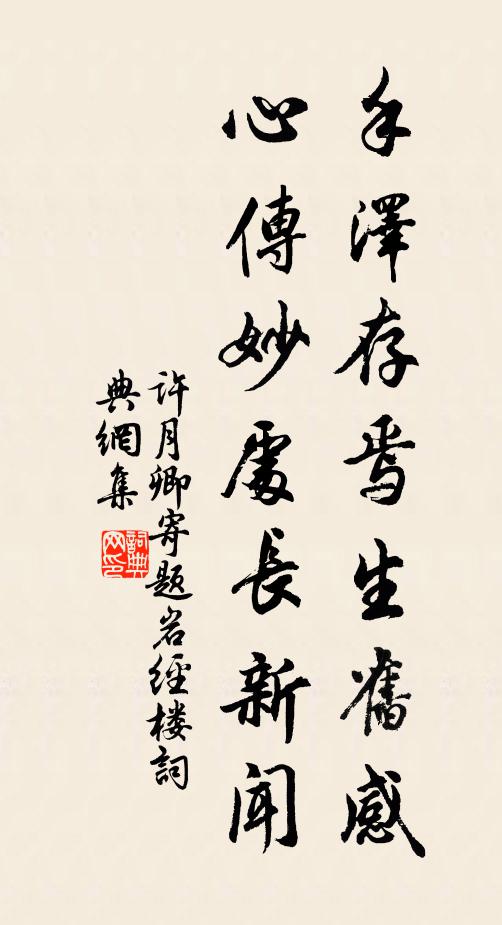 手澤存焉生舊感
心傳妙處長新聞
許月卿寄題岩經楼詞
典網集
詞典
网印